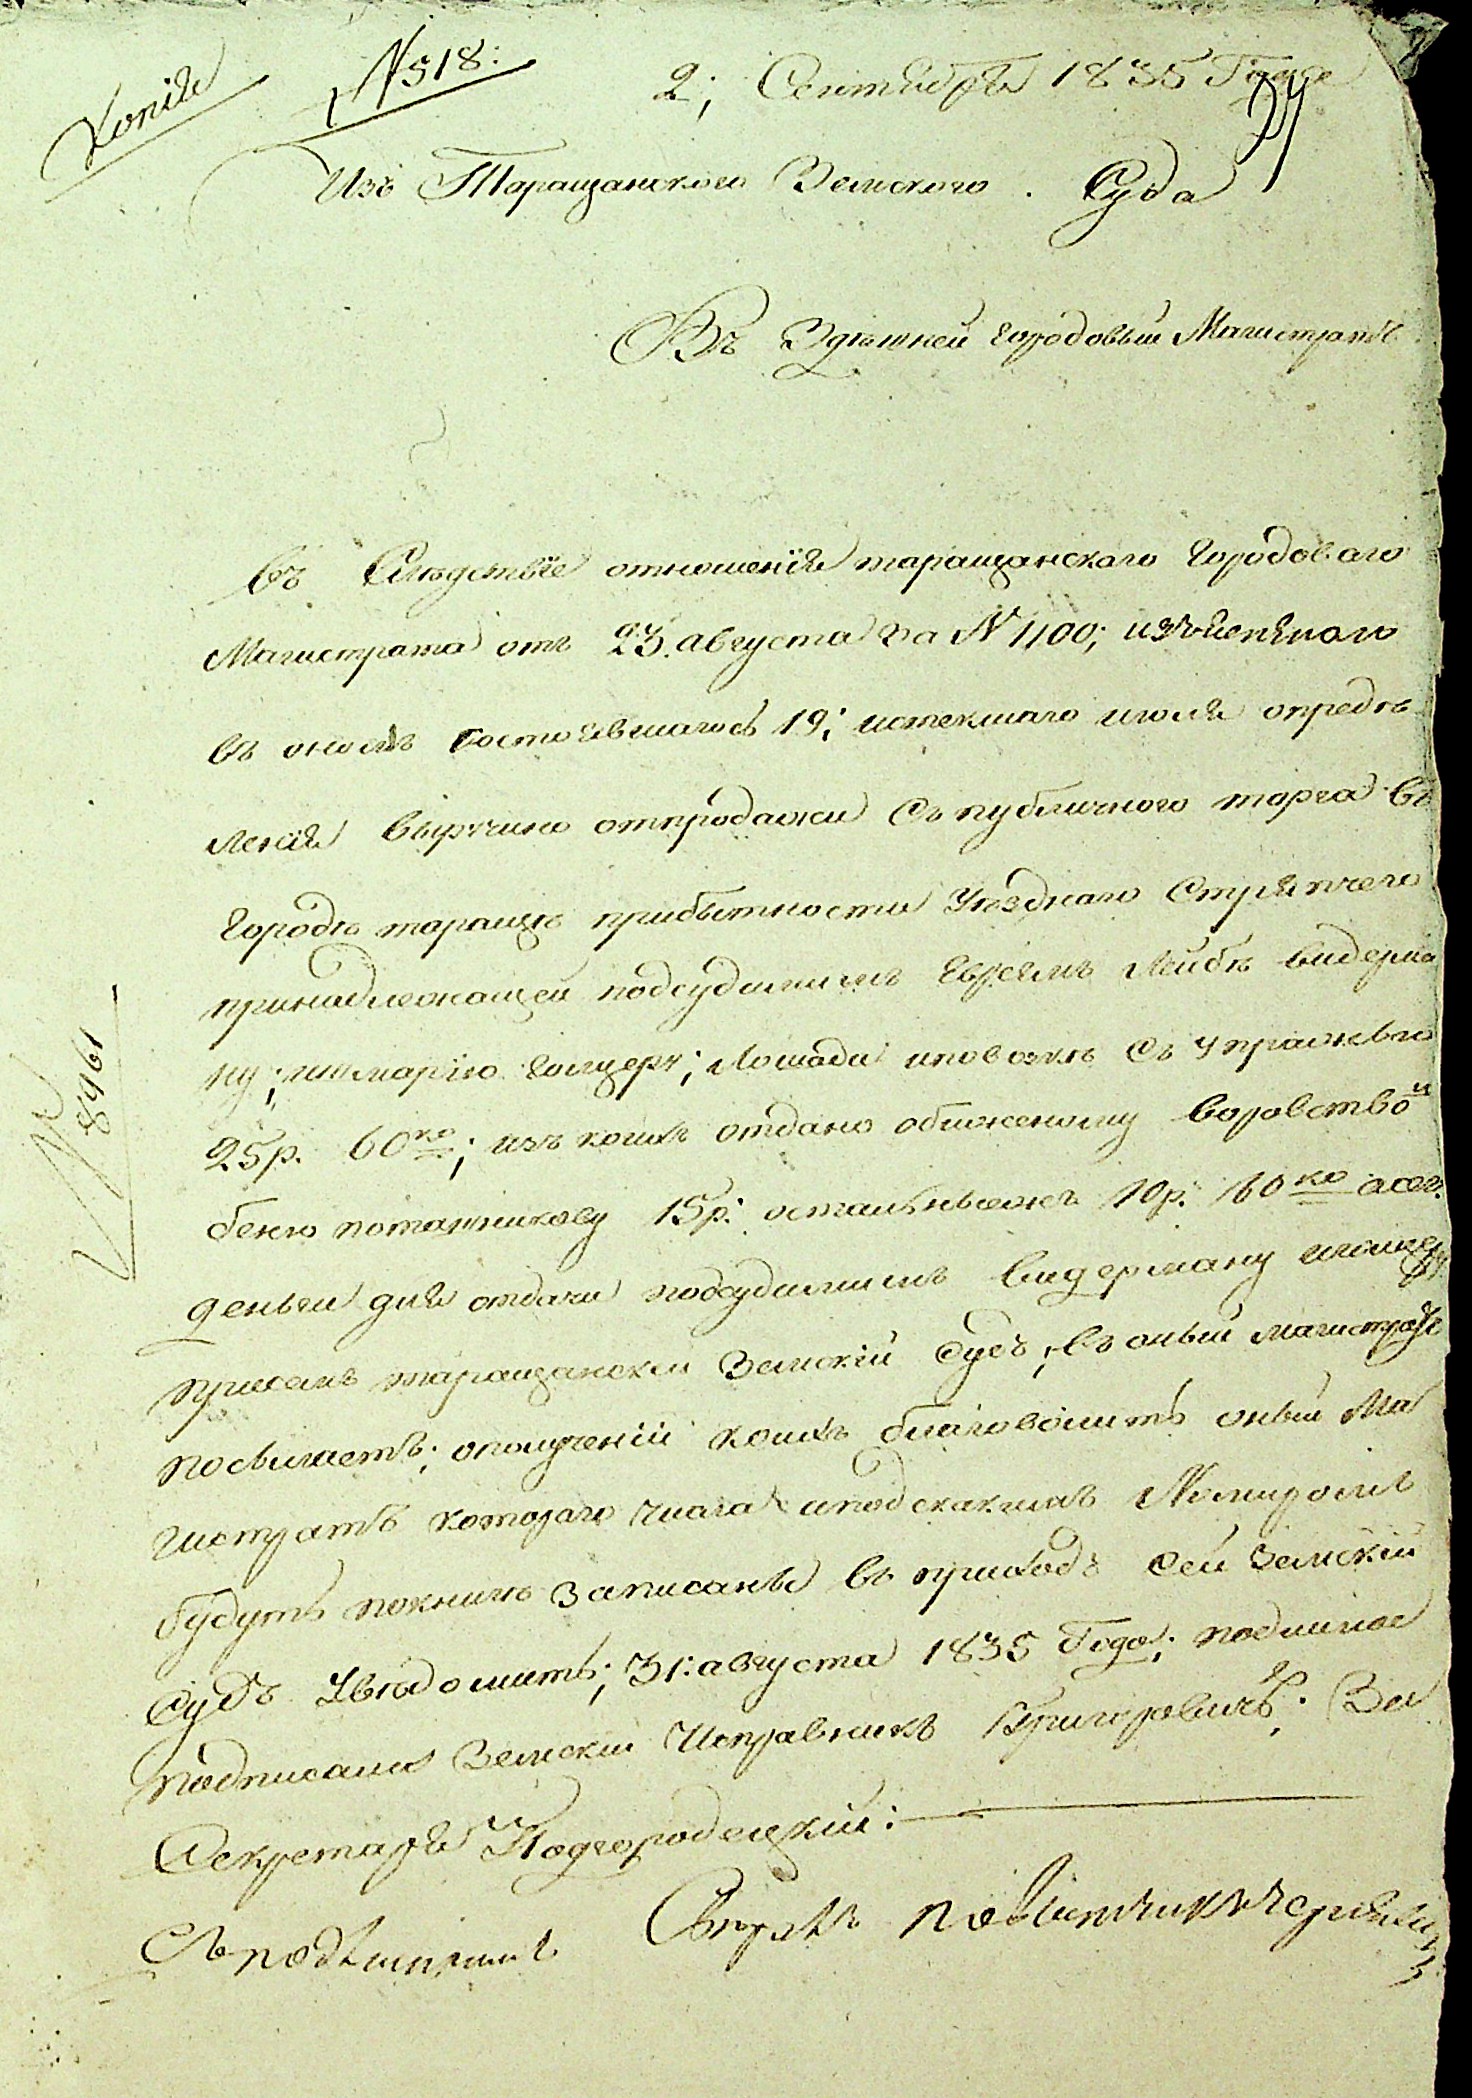 Копія
N 518:
2; Сентября 1835 Года
Изъ Таращанского Земского Суда
Въ Здѣшней городовый Магистратъ
въ Слѣдствіе отношенія таращанского Городоваго
Магистрата отъ 23. августа за N 1100;
въ ономъ состоявшагось 19; истекшаго июля опредѣ
ленія выручино отпродажи съ публичного торга въ
Городѣ таращѣ прибытности Уѣзднаго Стряпчего
принадлежащей подсудимимъ Евреямъ Лейбѣ видерма
ну; ишмарію Голцеру; Лошади иповозкѣ съ упражью
25р. 60 ко; изъ коихъ отдано обиженому воровствой
беню поташникову 15р: остальныежъ 10р: 60 ко асег.
деньги для отдачи подсудимимъ видерману
присемъ таращански Земскій Судъ; въ оный магистратъ
посылаетъ; ополученіи коихъ благоволитъ оный Ма
гистратъ котораго числа иподскакимъ Номиромъ
будутъ покнигѣ записаны въ приходъ сей Земскій
судъ Увѣдомить; 31: августа 1835 Года; подлиное
подписали Земскій Исправникъ Григоровичъ; За
Секретаря Подгородецкій:
Съ подлинимъ Свѣрялъ
N 8961